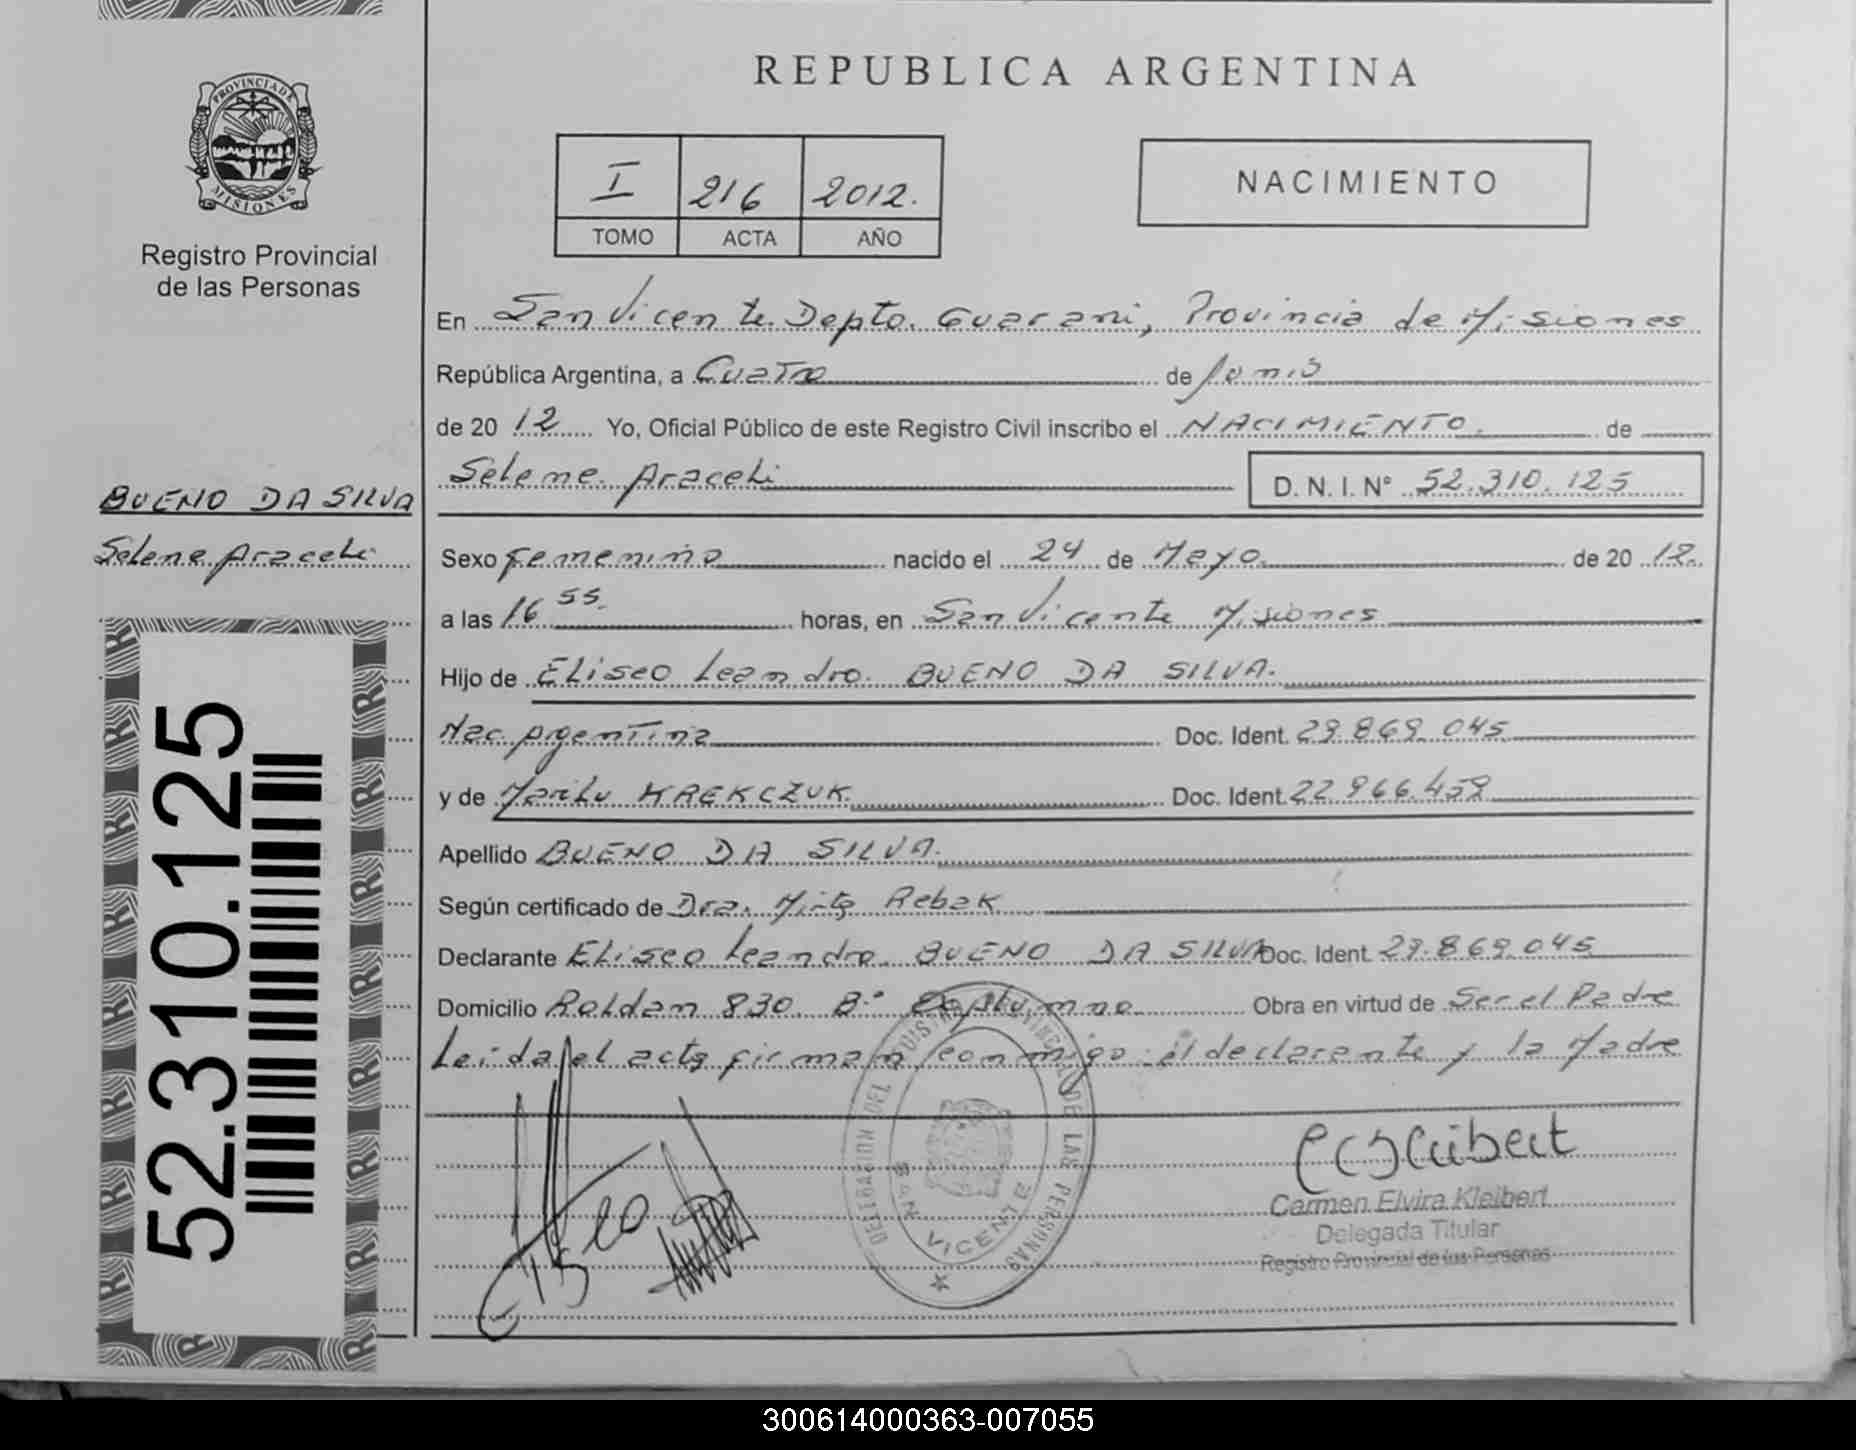 REPUBLICA ARGENTINA
PROVINCIA DE
MISIONES
Registro Provincial
de las Personas
I 216 2012.
TOMO ACTA AÑO
NACIMIENTO
En San Vicente. Depto. Guarani, Provincia de Misiones
República Argentina, a Cuatro de Junio
de 20 12 Yo, Oficial Público de este Registro Civil inscribo el NACIMIENTO. de
Selene Araceli D. N. I. Nº 52.310.125
BUENO DA SILVA
Selene Araceli
Sexo femenino nacido el 24 de Mayo. de 20 12.
a las 16 55. horas, en San Vicente Misiones
Hijo de Eliseo Leandro. BUENO DA SILVA.
Nac. Argentina Doc. Ident. 29.869.045
y de Marilu KREKCZUK. Doc. Ident. 22.966.459
Apellido BUENO DA SILVA.
Según certificado de Dra. Mirta Rebak
Declarante Eliseo Leandro. BUENO DA SILVA Doc. Ident. 29.869.045
Domicilio Roldan 830. Bº Obra en virtud de Ser el Padre
Leida el acta firman conmigo el declarante y la Madre
52.310.125
DELEGACION DEL REGISTRO PROVINCIAL DE LAS PERSONAS
SAN VICENTE
Carmen Elvira Kleibert
Delegada Titular
Registro Provincial de las Personas
300614000363-007055